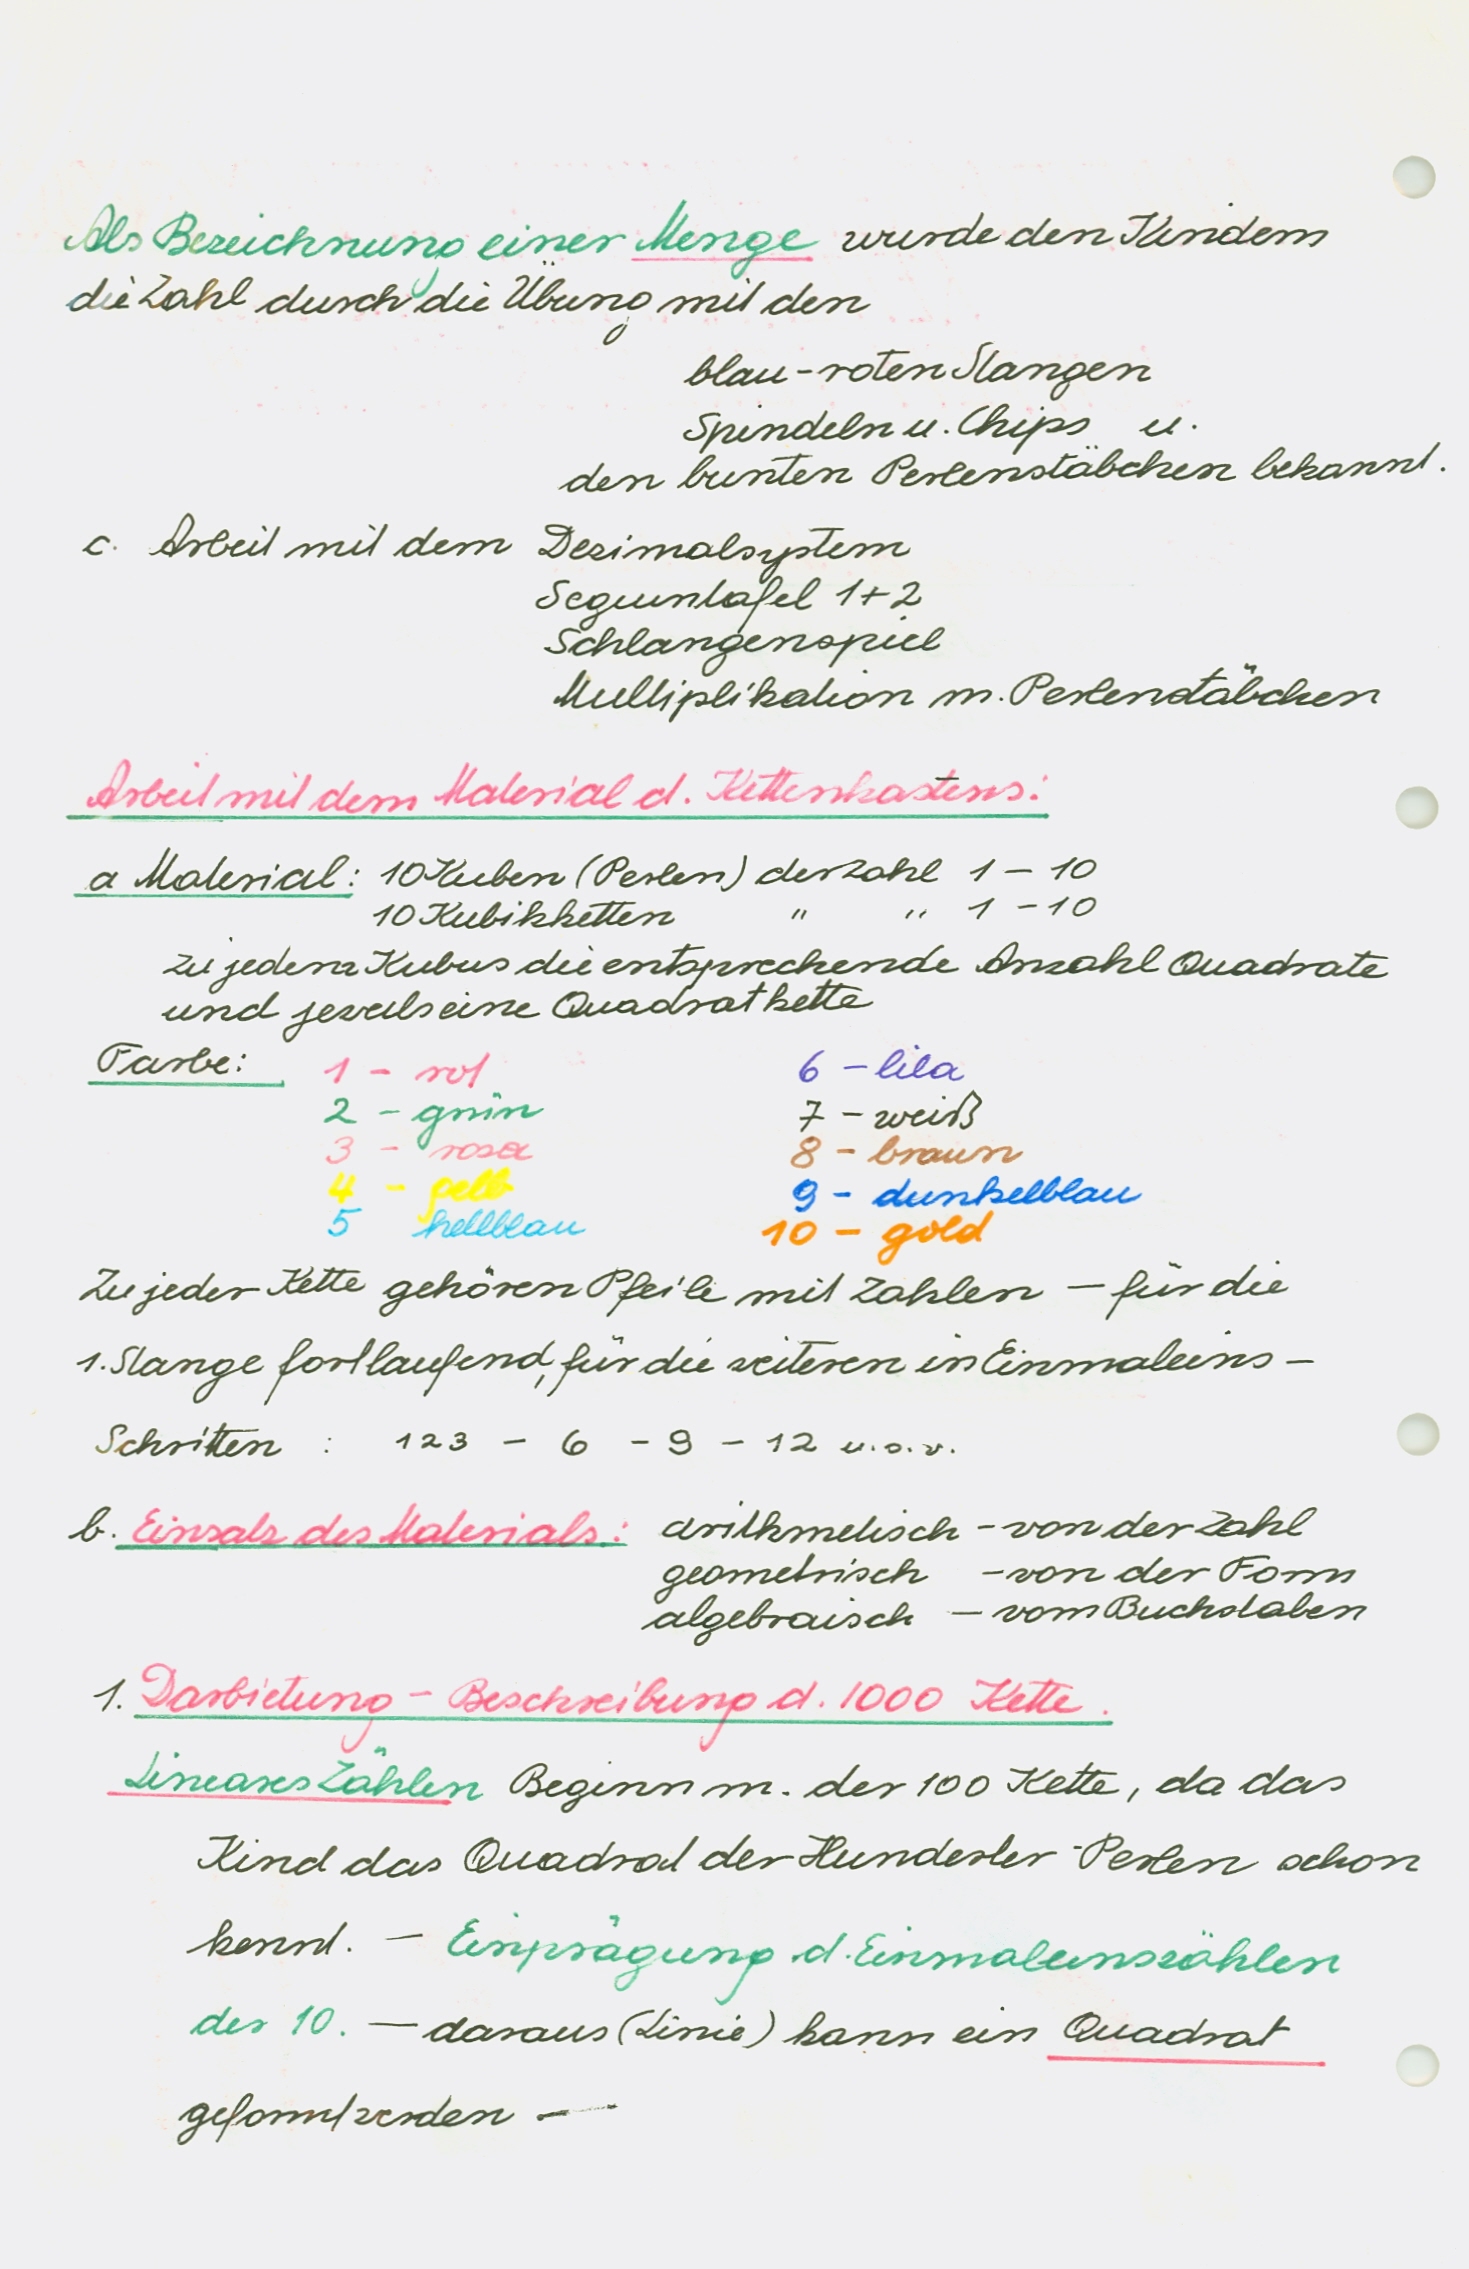 Als Bezeichnung einer Menge wurde den Kindern
die Zahl durch die Übung mit den
blau-roten Stangen
Spindeln u. Chips u.
den bunten Perlenstäbchen bekannt.
c. Arbeit mit dem Dezimalsystem
Seguintafel 1+2
Schlangenspiel
Multiplikation m. Perlenstäbchen
Arbeit mit dem Material d. Kettenkastens:
a Material: 10 Kuben (Perlen) der Zahl 1 – 10
10 Kubikketten " " 1 – 10
zu jedem Kubus die entsprechende Anzahl Quadrate
und jeweils eine Quadratkette
Farbe: 1 – rot 6 – lila
2 – grün 7 – weiß
3 – rosa 8 – braun
4 – gelb 9 – dunkelblau
5 hellblau 10 – gold
Zu jeder Kette gehören Pfeile mit Zahlen – für die
1. Stange fortlaufend, für die weiteren in Einmaleins –
Schritten : 123 – 6 – 9 – 12 u.s.w.
b. Einsatz des Materials: arithmetisch – von der Zahl
geometrisch – von der Form
algebraisch – vom Buchstaben
1. Darbietung – Beschreibung d. 1000 Kette.
Lineares Zählen Beginn m. der 100 Kette, da das
Kind das Quadrat der Hunderter-Perlen schon
kennt. – Einprägung d. Einmaleinszählen
der 10. – daraus (Linie) kann ein Quadrat
geformt werden –